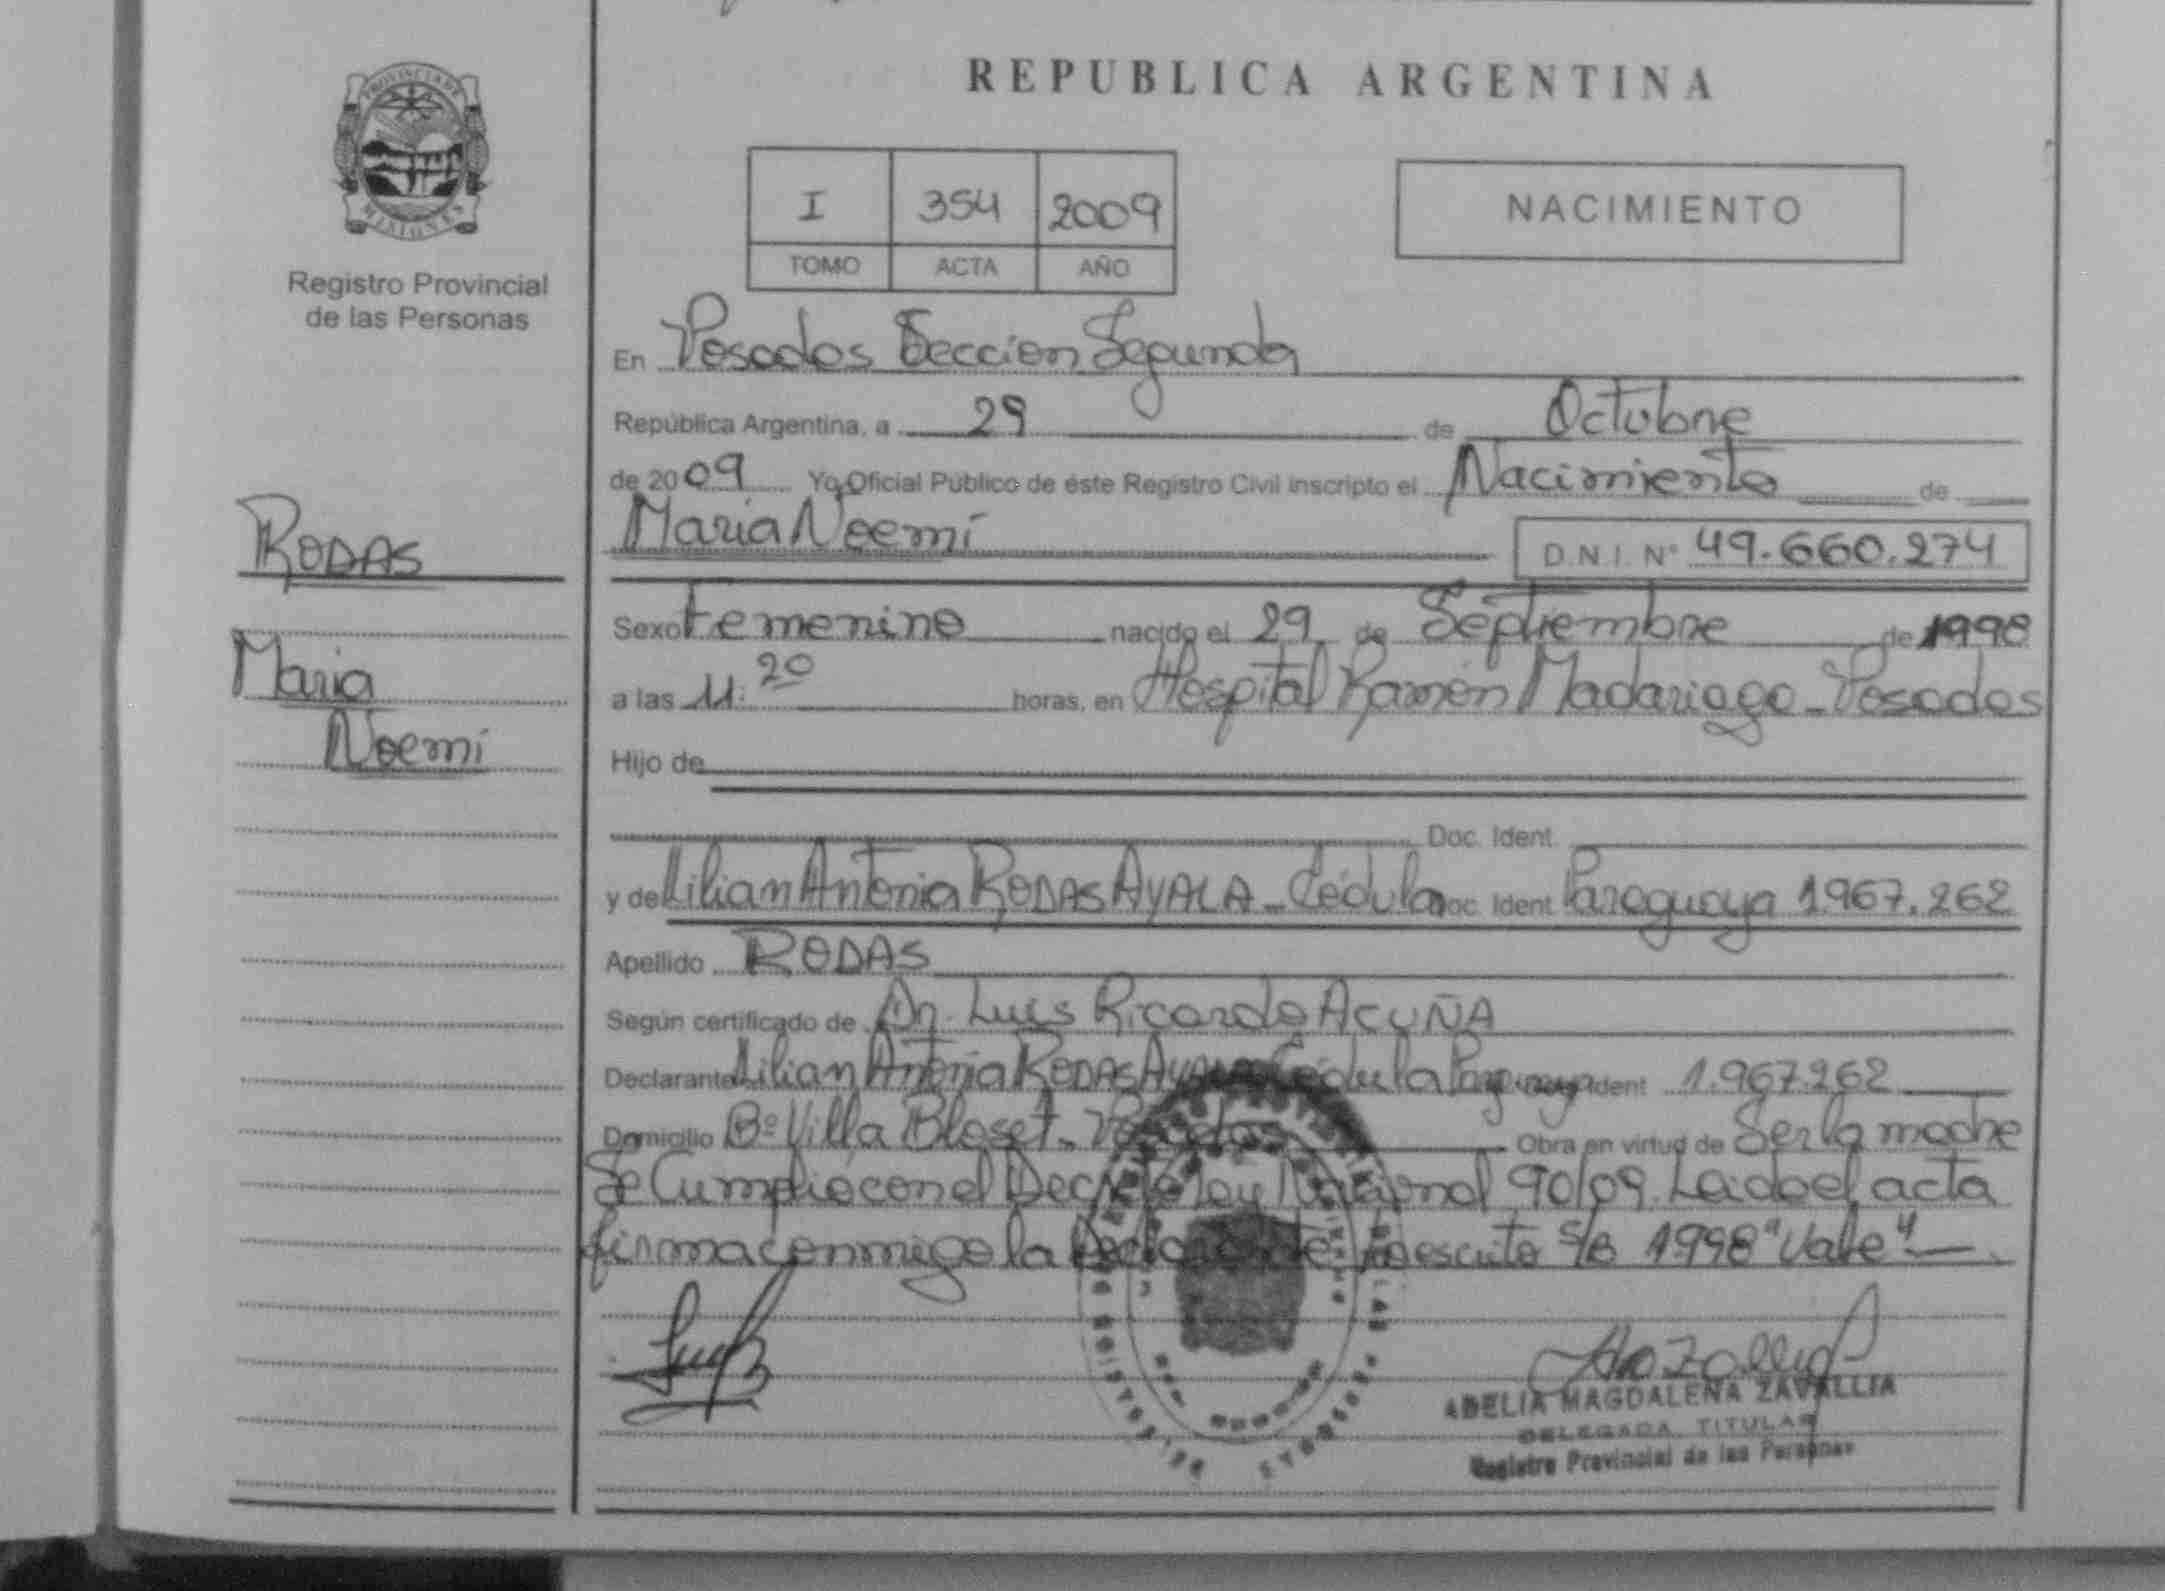 PROVINCIA DE
MISIONES
Registro Provincial
de las Personas
RODAS
Maria
Noemí
REPUBLICA ARGENTINA
I 354 2009
TOMO ACTA AÑO
NACIMIENTO
En Posadas Seccion Segunda
República Argentina, a 29 de Octubre
de 2009 Yo Oficial Público de éste Registro Civil inscripto el Nacimiento de
Maria Noemí D.N.I. Nº 49.660.274
Sexo Femenino nacido el 29 de Septiembre de 1998
a las 11:20 horas, en Hospital Ramón Madariaga - Posadas
Hijo de
Doc. Ident.
y de Lilian Antonia RODAS AYALA - Cédula Doc. Ident. Paraguaya 1.967.262
Apellido RODAS
Según certificado de Dr. Luis Ricardo ACUÑA
Declarante Lilian Antonia RODAS AYALA Cédula Paraguaya Ident 1.967.262
Domicilio Bº Villa Bloset - Posadas Obra en virtud de Ser la madre
Se Cumplió con el Decreto Ley Nacional 90/09. Leida el acta
firma conmigo la Declarante Lo escrito S/B 1998 "Vale"
ADELIA MAGDALENA ZAVALLIA
DELEGADA TITULAR
Registro Provincial de las Personas